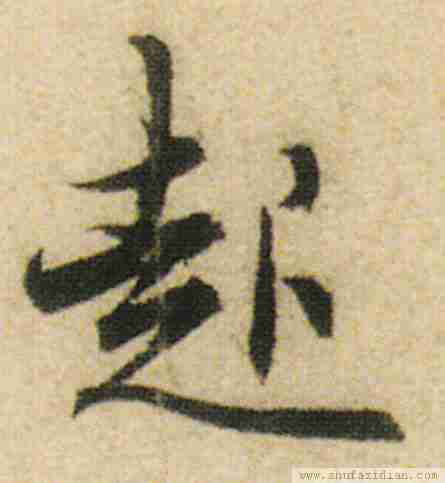 赴
www.shufazidian.com